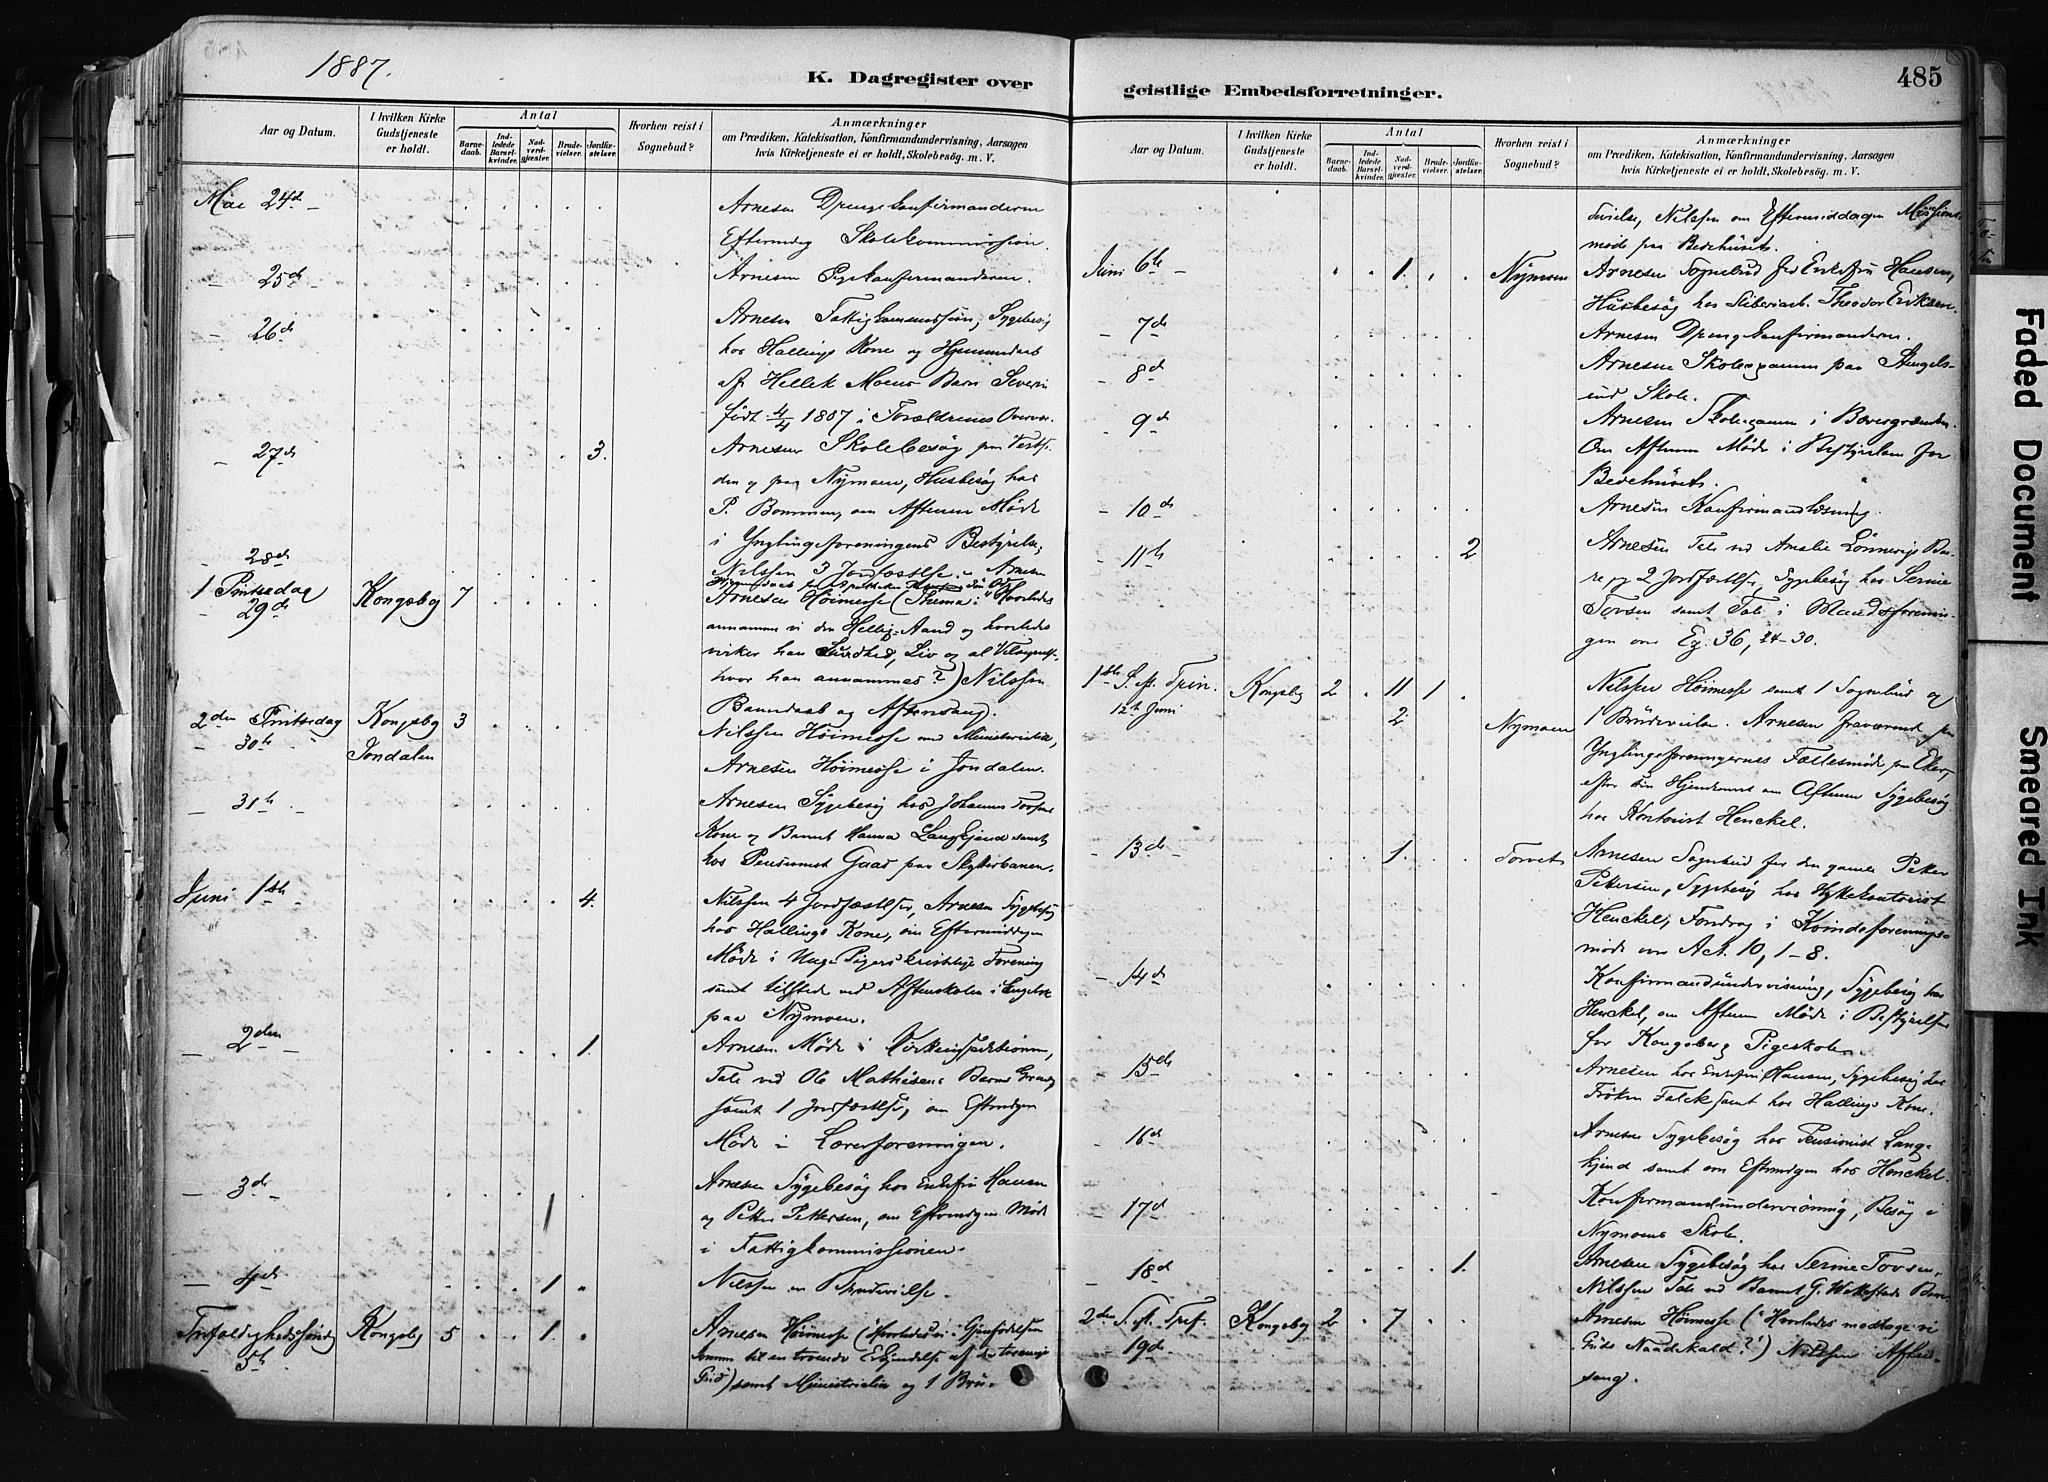 1887.
K. Dagregister over
Aar og Datum.
I hvilken Kirke Gudstjeneste er holdt.
Antal
Barnedaab.
Indledede Barselkvinder.
Nadverdgjester.
Brudevielser.
Jordfæstelser.
Hvorhen reist i Sognebud?
Anmærkninger
om Prædiken, Katekisation, Konfirmandundervisning, Aarsagen
hvis Kirketjeneste ei er holdt, Skolebesög. m. V.
Mai 24de
Arnesen Drengekonfirmanderne
Eftermdag Skolekommission.
25de
Arnesen Pigekonfirmanderne.
26de
Arnesen Fattigkommission, Sygebesøg
hos Hallings Kone og Hjemmedaab
af Hellik Moens Barn Severin
født 4/4 1887 i Forældrenes Overvær.
27de 3.
Arnesen Skolebesøg paa Vestsi-
den og paa Nymoen, Husbesøg hos
P. Bommen, om Aftenen Møde
i Ynglingeforeningens Bestyrelse,
28de
Nilssen 3 Jordfæstelse. Arnesen
1 Pintsedag 29de Kongsbg 7
Arnesen Høimesse (Thema: "Hvorledes
annamme vi den Hellig-Aand og hvorledes
virker han Sundhed, Liv og al
hvor han annammes?) Nilssen
Barnedaab og Aftensang.
2den Pintsedag 30te Kongsbg 3
Jondalen
Nilssen Høimesse med Ministerialia,
Arnesen Høimesse i Jondalen.
31te
Arnesen Sygebesøg hos Johannes Tovsens
Kone og Barnet Hanna Langkjend samt
hos Pensionist Gaas paa Skytterbanen.
Juni 1ste 4.
Nilssen 4 Jordfæstelser, Arnesen Sygebesøg
hos Hallings Kone, om Eftermiddagen
Møde i Unge Pigers kristelige Forening
samt tilstede ved Aftenskolen i Engelsk
paa Nymoen.
2den 1.
Arnesen Møde i Kirkeinspektionen,
Tale ved Ole Mathisens Barns Grav
samt 1 Jordfæstelse, om Eftmdgen
Møde i Lærerforeningen.
3de 1
Arnesen Sygebesøg hos Enkefru Hansen
og Petter Pettersen, om Eftermdgen Møde
i Fattigkommissionen.
4de 1
Nilssen en Brudevielse.
Trefoldighedssøndg 5te Kongsbg 5 1.
Arnesen Høimesse (Hvorledes vi i Gjenfødelsen
komme til en troende Erkjendelse af den treenige
Gud) samt Ministerialia og 1 Bru-
geistlige Embedsforretninger.
485
Aar og Datum.
I hvilken Kirke Gudstjeneste er holdt.
Antal
Barnedaab.
Indledede Barselkvinder.
Nadverdgjester.
Brudevielser.
Jordfæstelser.
Hvorhen reist i Sognebud?
Anmærkninger
om Prædiken, Katekisation, Konfirmandundervisning, Aarsagen
hvis Kirketjeneste ei er holdt, Skolebesög. m. V.
devielse, Nilssen om Eftermiddagen Missions-
møde paa Bedehuset.
Juni 6te 1. Nymoen
Arnesen Sognebud for Enkefru Hansen,
Husbesøg hos Sliberiarb. Theodor Eriksen.
7de
Arnesen Drengekonfirmanderne.
8de
Arnesen Skoleexamen paa Stengels-
rud Skole.
9de
Arnesen Skolexamen i Bævergrænden
Om Aftenen Møde i Bestyrelsen for
Bedehuset.
10de
Arnesen Konfirmandlæsning.
11te 2
Arnesen Tale ved Amalie Lønnerigs Baa-
re og 2 Jordfæstelser, Sygebesøg hos Serine
Tovsen samt Tale i Mandsforenin-
gen over Ez. 36, 24-30.
1ste S. eft. Trin. 12te Juni Kongsbg 2 11 1
2 Nymoen
Nilssen Høimesse samt 1 Sognebud og
1 Brudevielse. Arnesen fraværende paa
Ynglingeforeningernes Fællesmøde paa Eker,
efter sin Hjemkomst om Aftenen Sygebesøg
hos Kontorist Henckel.
13de 1. Torvet
Arnesen Sognebud for den gamle Petter
Pettersen, Sygebesøg hos
Henckel, Foredrag i Kvindeforenings-
møde over Act. 10, 1-8.
14de
Konfirmandundervisning, Sygebesøg hos
Henckel, om Aftenen Møde i Bestyrelsen
for Kongsberg Pigeskole.
15de
Arnesen hos Enkefru Hansen, Sygebesøg hos
Frøken Falck samt hos Hallings Kone.
16de
Arnesen Sygebesøg hos Pensionist Lang-
kjend samt om Eftermdgen hos Henckel.
17de
Konfirmandundervisning, Besøg i
Nymoens Skole.
18de 1.
Arnesen Sygebesøg hos Serine Tovsen,
Nilssen Tale ved Barnet G. Wekstads Baare
2den S. eft. Tref. 19de Kongsbg 2 7
Arnesen Høimesse ("Hvorledes modtage vi
Guds Naadekald?") Nilssen Aften-
sang.
Faded Document
Smeared Ink